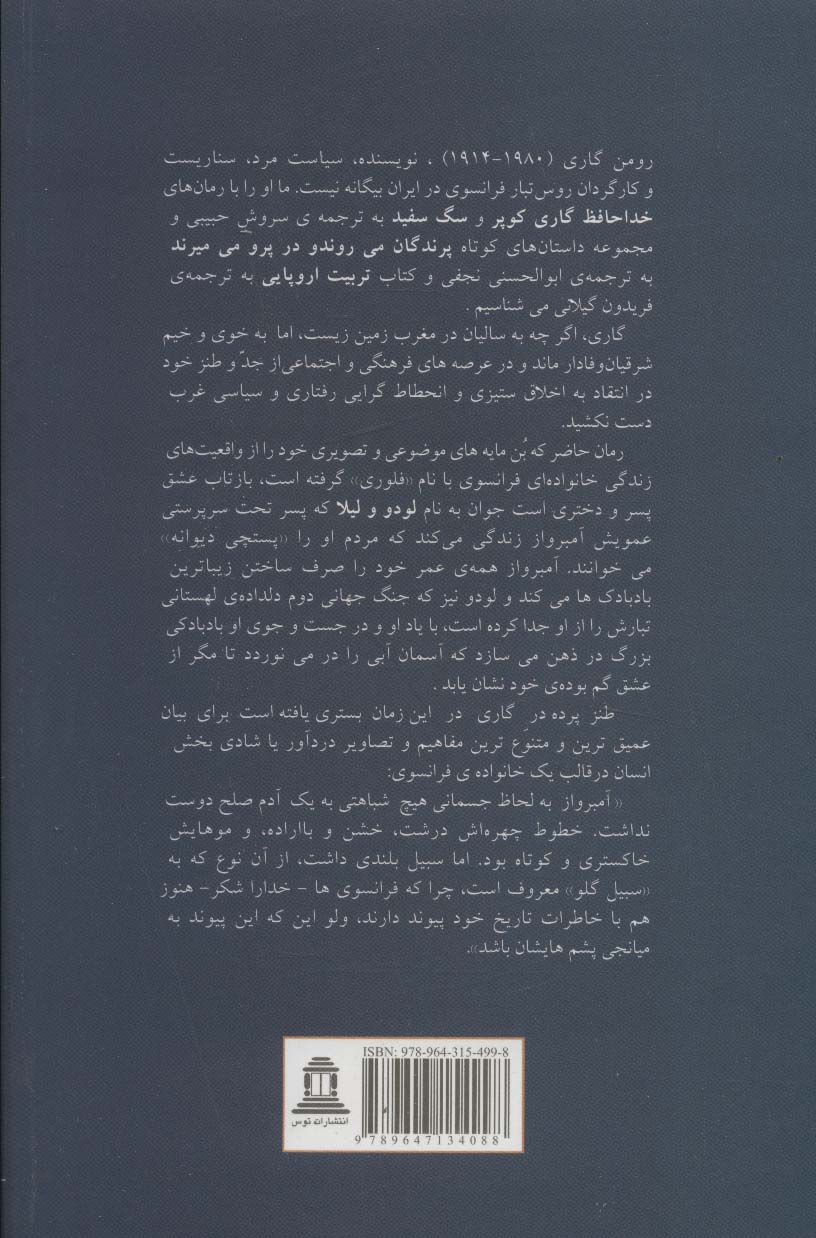 رومن گاری (۱۹۸۰-۱۹۱۴) ، نویسنده، سیاست مرد، سناریست
و کارگردان روس‌تبار فرانسوی در ایران بیگانه نیست. ما او را با رمان‌های
خداحافظ گاری کوپر و سگ سفید به ترجمه ی سروش حبیبی و
مجموعه داستان‌های کوتاه پرندگان می روندو در پرو می میرند
به ترجمه‌ی ابوالحسنی نجفی و کتاب تربیت اروپایی به ترجمه‌ی
فریدون گیلانی می شناسیم .
گاری، اگر چه به سالیان در مغرب زمین زیست، اما به خوی و خیم
شرقیان‌وفادار ماند و در عرصه های فرهنگی و اجتماعی‌از جدّ و طنز خود
در انتقاد به اخلاق ستیزی و انحطاط گرایی رفتاری و سیاسی غرب
دست نکشید.
رمان حاضر که بُن مایه های موضوعی و تصویری خود را از واقعیت‌های
زندگی خانواده‌ای فرانسوی با نام «فلوری» گرفته است، بازتاب عشق
پسر و دختری است جوان به نام لودو و لیلا که پسر تحت سرپرستی
عمویش آمبرواز زندگی می‌کند که مردم او را «پستچی دیوانه»
می خوانند. آمبرواز همه‌ی عمر خود را صرف ساختن زیباترین
بادبادک ها می کند و لودو نیز که جنگ جهانی دوم دلداده‌ی لهستانی
تبارش را از او جدا کرده است، با یاد او و در جست و جوی او بادبادکی
بزرگ در ذهن می سازد که آسمان آبی را در می نوردد تا مگر از
عشق گم بوده‌ی خود نشان یابد .
طنز پرده درِ گاری در این زمان بستری یافته است برای بیان
عمیق ترین و متنوع ترین مفاهیم و تصاویر دردآور یا شادی بخش
انسان درقالب یک خانواده ی فرانسوی:
« آمبرواز به لحاظ جسمانی هیچ شباهتی به یک آدم صلح دوست
نداشت. خطوط چهره‌اش درشت، خشن و بااراده، و موهایش
خاکستری و کوتاه بود. اما سبیل بلندی داشت، از آن نوع که به
«سبیل گلو» معروف است، چرا که فرانسوی ها - خدارا شکر- هنوز
هم با خاطرات تاریخ خود پیوند دارند، ولو این که این پیوند به
میانجی پشم هایشان باشد».
ISBN: 978-964-315-499-8
انتشارات توس
9 789647 134088